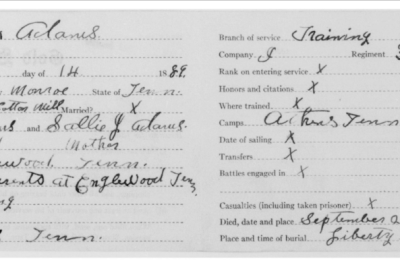 Adams.
day of 14 1889.
Monroe State of Tenn.
Cotton Mill Married? X
and Sallie J Adams.
Mother
Tenn.
at Englewood Tenn.
Tenn.
Branch of service Training
Company I Regiment
Rank on entering service X
Honors and citations X
Where trained X
Camps Athens Tenn
Date of sailing X
Transfers X
Battles engaged in X
Casualties (including taken prisoner) X
Died, date and place September
Place and time of burial Liberty